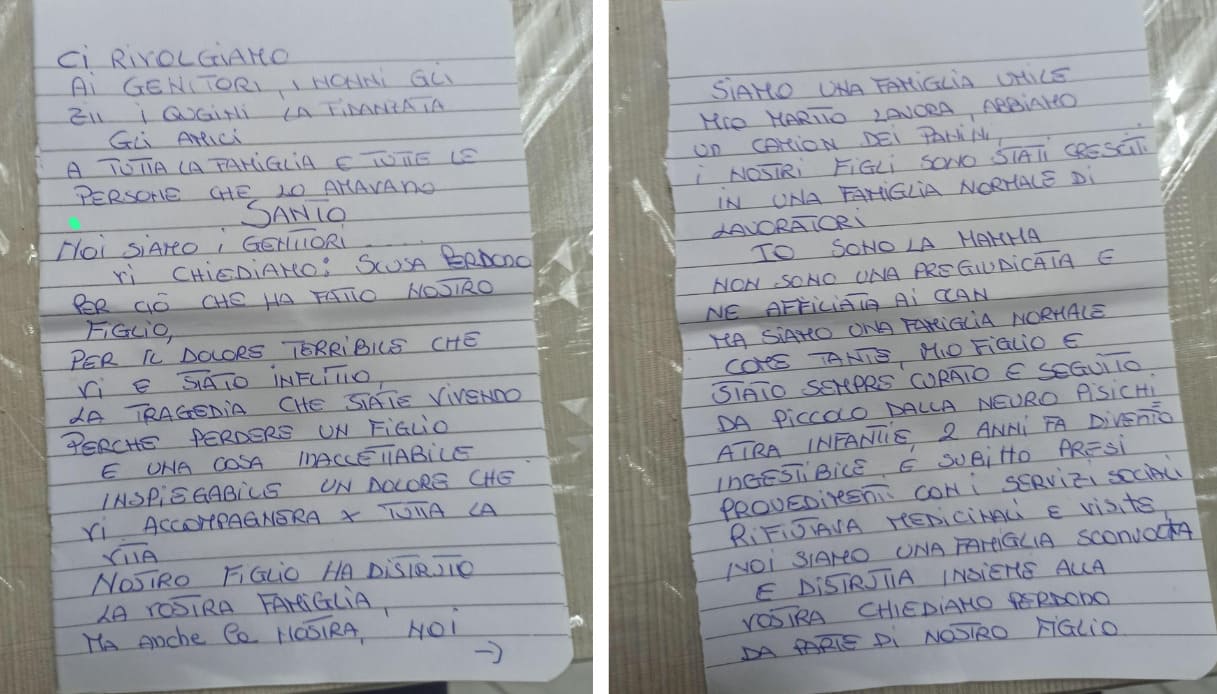 Ci RIVOLGIAMO
Ai GENITORI, i NONNI GLi
Zii i CUGINI LA FIDANZATA
GLi AMICI
A TUTTA LA FAMIGLIA E TUTTE LE
PERSONE CHE LO AMAVANO
SANTO
Noi SIAMO i GENITORI
Vi CHIEDIAMO: SCUSA PERDONO
PER CIÒ CHE HA FATTO NOSTRO
FIGLIO,
PER IL DOLORE TERRIBILE CHE
Vi E STATO INFLITTO,
LA TRAGEDIA CHE STATE VIVENDO
PERCHE PERDERE UN FIGLIO
E UNA COSA INACCETTABILE
INSPIEGABILE UN DOLORE CHE
Vi ACCOMPAGNERA X TUTTA LA
VITA
NOSTRO FIGLIO HA DISTRUTTO
LA VOSTRA FAMIGLIA,
MA ANCHE La NOSTRA, NOI
→
SIAMO UNA FAMIGLIA UMILE
MIO MARITO LAVORA, ABBIAMO
UN CAMION DEI PANINI,
i NOSTRI FIGLI SONO STATI CRESCIUTI
IN UNA FAMIGLIA NORMALE DI
LAVORATORI
IO SONO LA MAMMA
NON SONO UNA PREGIUDICATA E
NE AFFILIATA Ai CLAN
MA SIAMO UNA FAMIGLIA NORMALE
COME TANTE, MIO FIGLIO E
STATO SEMPRE CURATO E SEGUITO
DA PICCOLO DALLA NEURO PISICHI
ATRA INFANTIE, 2 ANNI FA DIVENTO
INGESTIBILE, E SUBITTO PRESI
PROVEDIMENTI CON i SERVIZI SOCIALI
RIFIUTAVA MEDICINALI E VISITE,
NOI SIAMO UNA FAMIGLIA SCONVOLTA
E DISTRUTTA INSIEME ALLA
VOSTRA CHIEDIAMO PERDONO
DA PARTE DI NOSTRO FIGLIO.